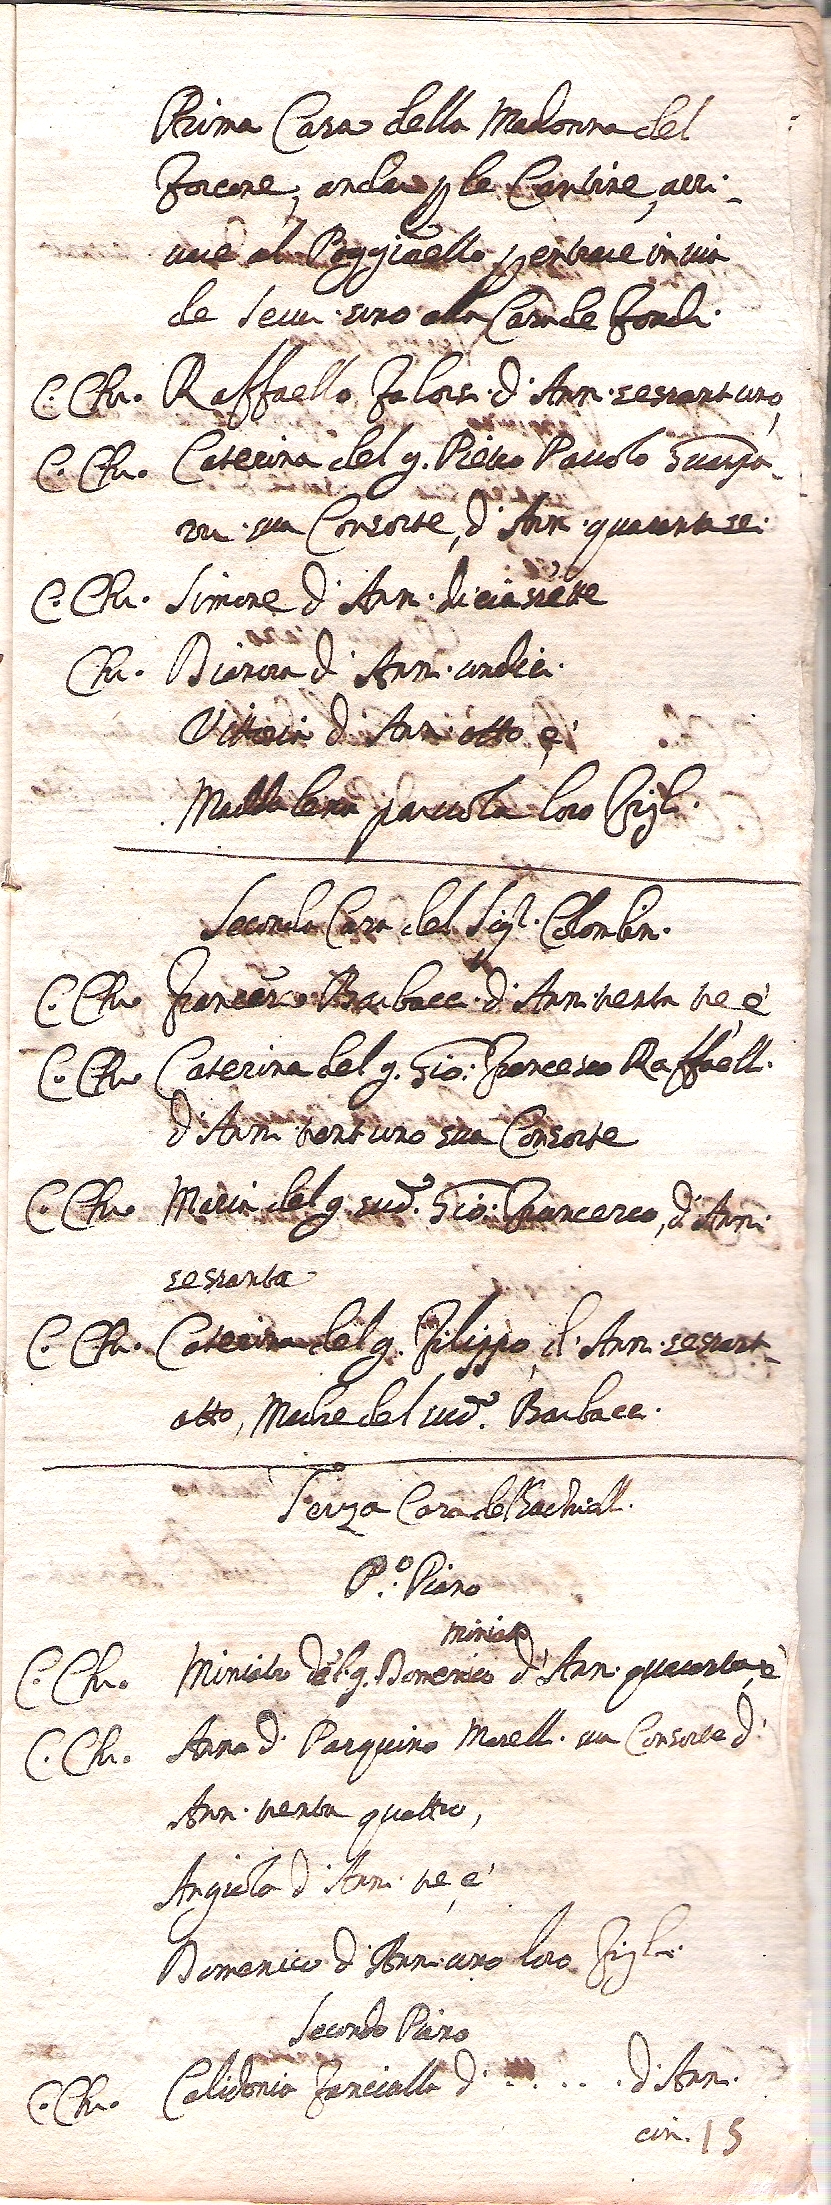 Prima Casa della Madonna del
Forcone, andar p le Cantine, arri-
vare al Poggiarello p entrare in via
de Servi sino alla Casa de Fondi.
C. Chr. Raffaello Falorsi d'Ann. sessantuno,
C. Chr. Caterina del q. Pietro Pavolo Guaspa-
rri sua Consorte, d'Ann. quarantasei
C. Chr. Simone d'Ann. diciassette
Chr. Bianora d'Ann. undici.
Vittoria d'Ann. otto, e'
Maddalena piccola loro Figli.
Seconda Casa del Sigr. Colombin.
C. Chr. Francesco Barbacci d'Ann. trenta tre e'
C. Chr. Caterina del q. Gio: Francesco Raffaell.
d'Ann. trentuno sua Consorte
C. Chr. Maria del q. sud.o Gio: Francesco, d'Ann.
sessanta
C. Chr. Caterina del q. Filippo, d'Ann. sessant-
otto, Madre del sud.o Barbacci.
Terza Casa del
P.o Piano
Miniato
C. Chr. del q. Domenico d'Ann. quaranta, e'
C. Chr. Anna di Pasquino Masell. sua Consorte d'
Ann. trenta quattro,
Angiola d'Ann. tre, e'
Domenico d'Ann. uno loro Figli.
Secondo Piano
C. Chr. Calidonia Fanciulla d' . . . . . d'Ann.
cin. 15